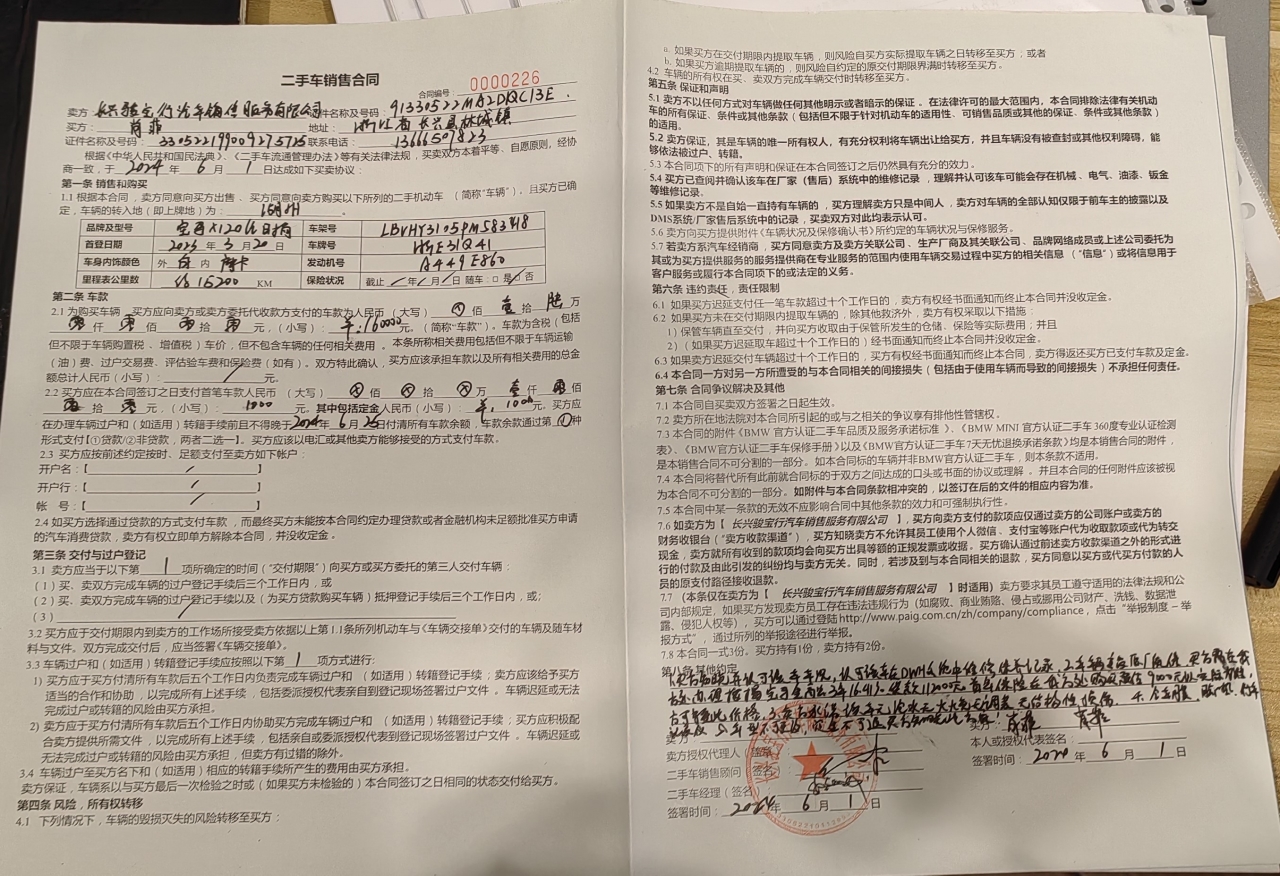 二手车销售合同
合同编号：0000226
卖方：长兴骏宝行汽车销售服务有限公司 证件名称及号码：91330522MA2D1QC13E.
买方：肖菲 地址：浙江省长兴县林城镇
证件名称及号码：330522199009275725 联系电话：13666507823
根据《中华人民共和国民法典》、《二手车流通管理办法》等有关法律法规，买卖双方本着平等、自愿原则，经协
商一致，于 2024 年 6 月 1 日达成如下买卖协议：
第一条 销售和购买
1.1 根据本合同，卖方同意向买方出售、买方同意向卖方购买以下所列的二手机动车（简称“车辆”）。且买方已确
定，车辆的转入地（即上牌地）为：湖州。
品牌及型号 宝马X1 20Li 车架号 LBVHY3105PM583418
首登日期 2023 年 3 月 20 日 车牌号 浙E31Q41
车身内饰颜色 外 白 内 摩卡 发动机号 A449E860
里程表公里数 15200 KM 保险状况 截止 / 年 / 月 / 日 随车：□ 是 □ 否
第二条 车款
2.1 为购买车辆，买方应向卖方或卖方委托代收款方支付的车款为人民币（大写） 佰 壹 拾 陆 万
零 仟 零 佰 零 拾 零 元，（小写）：¥:160000元。（简称“车款”）。车款为含税（包括
但不限于车辆购置税、增值税）车价，但不包含车辆的任何相关费用。本条所称相关费用包括但不限于车辆运输
（油）费、过户交易费、评估验车费和保险费（如有）。双方特此确认，买方应该承担车款以及所有相关费用的总金
额总计人民币（小写）：/元。
2.2 买方应在本合同签订之日支付首笔车款人民币（大写） 佰 拾 万 壹 仟 零 佰
零 拾 零 元，（小写）：1000 元。其中包括定金人民币（小写）：¥.1000元。买方应
在办理车辆过户和（如适用）转籍手续前且不得晚于2024年 6 月 25日付清所有车款余额，车款余款通过第 ① 种
形式支付【①贷款/②非贷款，两者二选一】。买方应该以电汇或其他卖方能够接受的方式支付车款。
2.3 买方应按前述约定按时、足额支付至卖方如下帐户：
开户名：【 / 】
开户行：【 / 】
帐 号：【 / 】
2.4 如买方选择通过贷款的方式支付车款，而最终买方未能按本合同约定办理贷款或者金融机构未足额批准买方申请
的汽车消费贷款，卖方有权立即单方解除本合同，并没收定金。
第三条 交付与过户登记
3.1 卖方应当于以下第 1 项所确定的时间（“交付期限”）向买方或买方委托的第三人交付车辆：
（1）买、卖双方完成车辆的过户登记手续后三个工作日内，或
（2）买、卖双方完成车辆的过户登记手续以及（为买方贷款购买车辆）抵押登记手续后三个工作日内，或；
（3） /
3.2 买方应于交付期限内到卖方的工作场所接受卖方依据以上第 1.1条所列机动车与《车辆交接单》交付的车辆及随车材
料与文件。双方完成交付后，应当签署《车辆交接单》。
3.3 车辆过户和（如适用）转籍登记手续应按照以下第 1 项方式进行：
1）买方应于买方付清所有车款后五个工作日内负责完成车辆过户和（如适用）转籍登记手续；卖方应该给予买方
适当的合作和协助，以完成所有上述手续，包括委派授权代表亲自到登记现场签署过户文件。车辆迟延或无法
完成过户或转籍的风险由买方承担。
2）卖方应于买方付清所有车款后五个工作日内协助买方完成车辆过户和（如适用）转籍登记手续；买方应积极配
合卖方提供所需文件，以完成所有上述手续，包括亲自或委派授权代表到登记现场签署过户文件。车辆迟延或
无法完成过户或转籍的风险由买方承担，但卖方有过错的除外。
3.4 车辆过户至买方名下和（如适用）相应的转籍手续所产生的费用由买方承担。
卖方保证，车辆系以与买方最后一次检验之时或（如果买方未检验的）本合同签订之日相同的状态交付给买方。
第四条 风险，所有权转移
4.1 下列情况下，车辆的毁损灭失的风险转移至买方：
a. 如果买方在交付期限内提取车辆，则风险自买方实际提取车辆之日转移至买方；或者
b. 如果买方逾期提取车辆的，则风险自约定的原交付期限界满时转移至买方。
4.2 车辆的所有权在买、卖双方完成车辆交付时转移至买方。
第五条 保证和声明
5.1 卖方不以任何方式对车辆做任何其他明示或者暗示的保证。在法律许可的最大范围内，本合同排除法律有关机动
车的所有保证、条件或其他条款（包括但不限于针对机动车的适用性、可销售品质或其他的保证、条件或其他条款）
的适用。
5.2 卖方保证，其是车辆的唯一所有权人，有充分权利将车辆出让给买方，并且车辆没有被查封或其他权利障碍，能
够依法被过户、转籍。
5.3 本合同项下的所有声明和保证在本合同签订之后仍然具有充分的效力。
5.4 买方已查阅并确认该车在厂家（售后）系统中的维修记录，理解并认可该车可能会存在机械、电气、油漆、钣金
等维修记录。
5.5 如果卖方不是自始一直持有车辆的，买方理解卖方只是中间人，卖方对车辆的全部认知仅限于前车主的披露以及
DMS系统/厂家售后系统中的记录，买卖双方对此均表示认可。
5.6 卖方向买方提供附件《车辆状况及保修确认书》所约定的车辆状况与保修服务。
5.7 若卖方系汽车经销商，买方同意卖方及卖方关联公司、生产厂商及其关联公司、品牌网络成员或上述公司委托为
其或为买方提供服务的服务提供商在专业服务的范围内使用车辆交易过程中买方的相关信息（“信息”）或将信息用于
客户服务或履行本合同项下的或法定的义务。
第六条 违约责任，责任限制
6.1 如果买方迟延支付任一笔车款超过十个工作日的，卖方有权经书面通知而终止本合同并没收定金。
6.2 如果买方未在交付期限内提取车辆的，除其他救济外，卖方有权采取以下措施：
1）保管车辆直至交付，并向买方收取由于保管所发生的仓储、保险等实际费用；并且
2）（如果买方迟延取车超过十个工作日的）经书面通知而终止本合同并没收定金。
6.3 如果卖方迟延交付车辆超过十个工作日的，买方有权经书面通知而终止本合同，卖方得返还买方已支付车款及定金。
6.4 本合同一方对另一方所遭受的与本合同相关的间接损失（包括由于使用车辆而导致的间接损失）不承担任何责任。
第七条 合同争议解决及其他
7.1 本合同自买卖双方签署之日起生效。
7.2 卖方所在地法院对本合同所引起的或与之相关的争议享有排他性管辖权。
7.3 本合同的附件《BMW 官方认证二手车品质及服务承诺标准》、《BMW MINI 官方认证二手车 360度专业认证检测
表》、《BMW官方认证二手车保修手册》以及《BMW官方认证二手车7天无忧退换承诺条款》均是本销售合同的附件，
是本销售合同不可分割的一部分。如本合同标的车辆并非BMW官方认证二手车，则本条款不适用。
7.4 本合同将替代所有此前就合同标的于双方之间达成的口头或书面的协议或理解。并且本合同的任何附件应该被视
为本合同不可分割的一部分。如附件与本合同条款相冲突的，以签订在后的文件的相应内容为准。
7.5 本合同中某一条款的无效不应影响合同中其他条款的效力和可强制执行性。
7.6 如卖方为【 长兴骏宝行汽车销售服务有限公司 】，买方向卖方支付的款项应仅通过卖方的公司账户或卖方的
财务收银台（“卖方收款渠道”），买方知晓卖方不允许其员工使用个人微信、支付宝等账户代为收取款项或代为转交
现金，卖方就所有收到的款项均会向买方出具等额的正规发票或收据。买方确认通过前述卖方收款渠道之外的形式进
行的付款及由此引发的纠纷均与卖方无关。同时，若涉及到与本合同相关的退款，买方同意以买方或代买方付款的人
员的原支付路径接收退款。
7.7 （本条仅在卖方为【 长兴骏宝行汽车销售服务有限公司 】时适用）卖方要求其员工遵守适用的法律法规和公
司内部规定，如果买方发现卖方员工存在违法违规行为（如腐败、商业贿赂、侵占或挪用公司财产、洗钱、数据泄
露、侵犯人权等），买方可以通过登陆http://www.paig.com.cn/zh/company/compliance，点击“举报制度 – 举
报方式”，通过所列的举报途径进行举报。
7.8 本合同一式3份。买方持有1份，卖方持有2份。
第八条 其他约定
卖方： 买方：肖菲 肖菲
卖方授权代理人（签名 本人或授权代表签名：
二手车销售顾问（签名 签署时间：2024 年 6 月 1 日
二手车经理（签名
签署时间：2024年 6 月 1 日